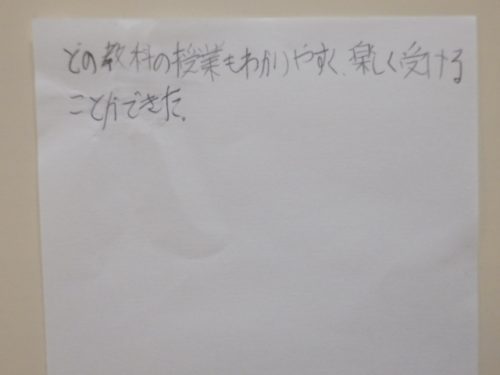 どの教科の授業もわかりやすく、楽しく受ける
ことができた。